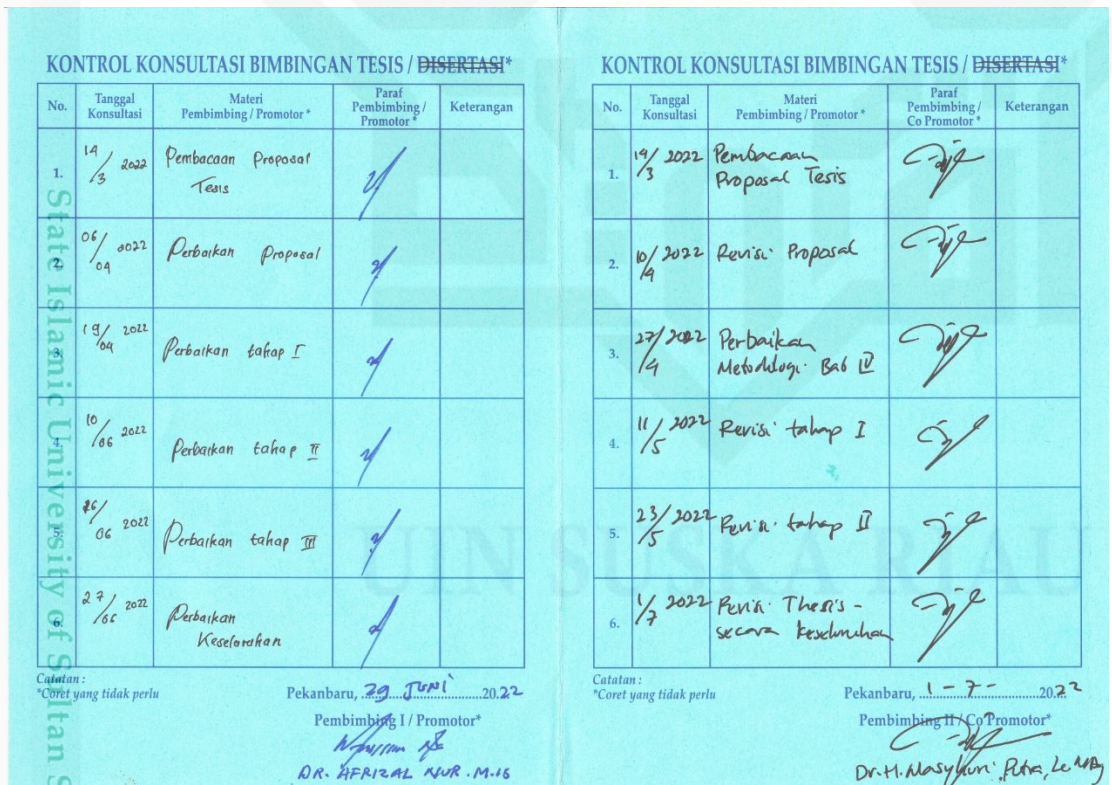 KONTROL KONSULTASI BIMBINGAN TESIS / DISERTASI*
No.
Tanggal Konsultasi
Materi Pembimbing / Promotor *
Paraf Pembimbing / Promotor *
Keterangan
1. 14/3 2022 Pembacaan Proposal
Tesis
2. 06/04 2022 Perbaikan Proposal
3. 19/04 2022 Perbaikan tahap I
4. 10/06 2022 Perbaikan tahap II
5. 16/06 2022 Perbaikan tahap III
6. 27/06 2022 Perbaikan
Keselurahan
Catatan :
*Coret yang tidak perlu
Pekanbaru, 29 JUNI 2022
Pembimbing I / Promotor*
DR. AFRIZAL NUR. M.IS
KONTROL KONSULTASI BIMBINGAN TESIS / DISERTASI*
No.
Tanggal Konsultasi
Materi Pembimbing / Promotor *
Paraf Pembimbing / Co Promotor *
Keterangan
1. 14/3 2022 Pembacaan
Proposal Tesis
2. 10/4 2022 Revisi Proposal
3. 27/4 2022 Perbaikan
Metodologi Bab IV
4. 11/5 2022 Revisi tahap I
5. 23/5 2022 Revisi tahap II
6. 1/7 2022 Revisi Thesis -
secara keseluruhan
Catatan :
*Coret yang tidak perlu
Pekanbaru, 1 - 7 - 2022
Pembimbing II / Co Promotor*
Dr. H. Masyhuri Putra, Lc
State Islamic University of Sultan
UIN SUSKA RIAU